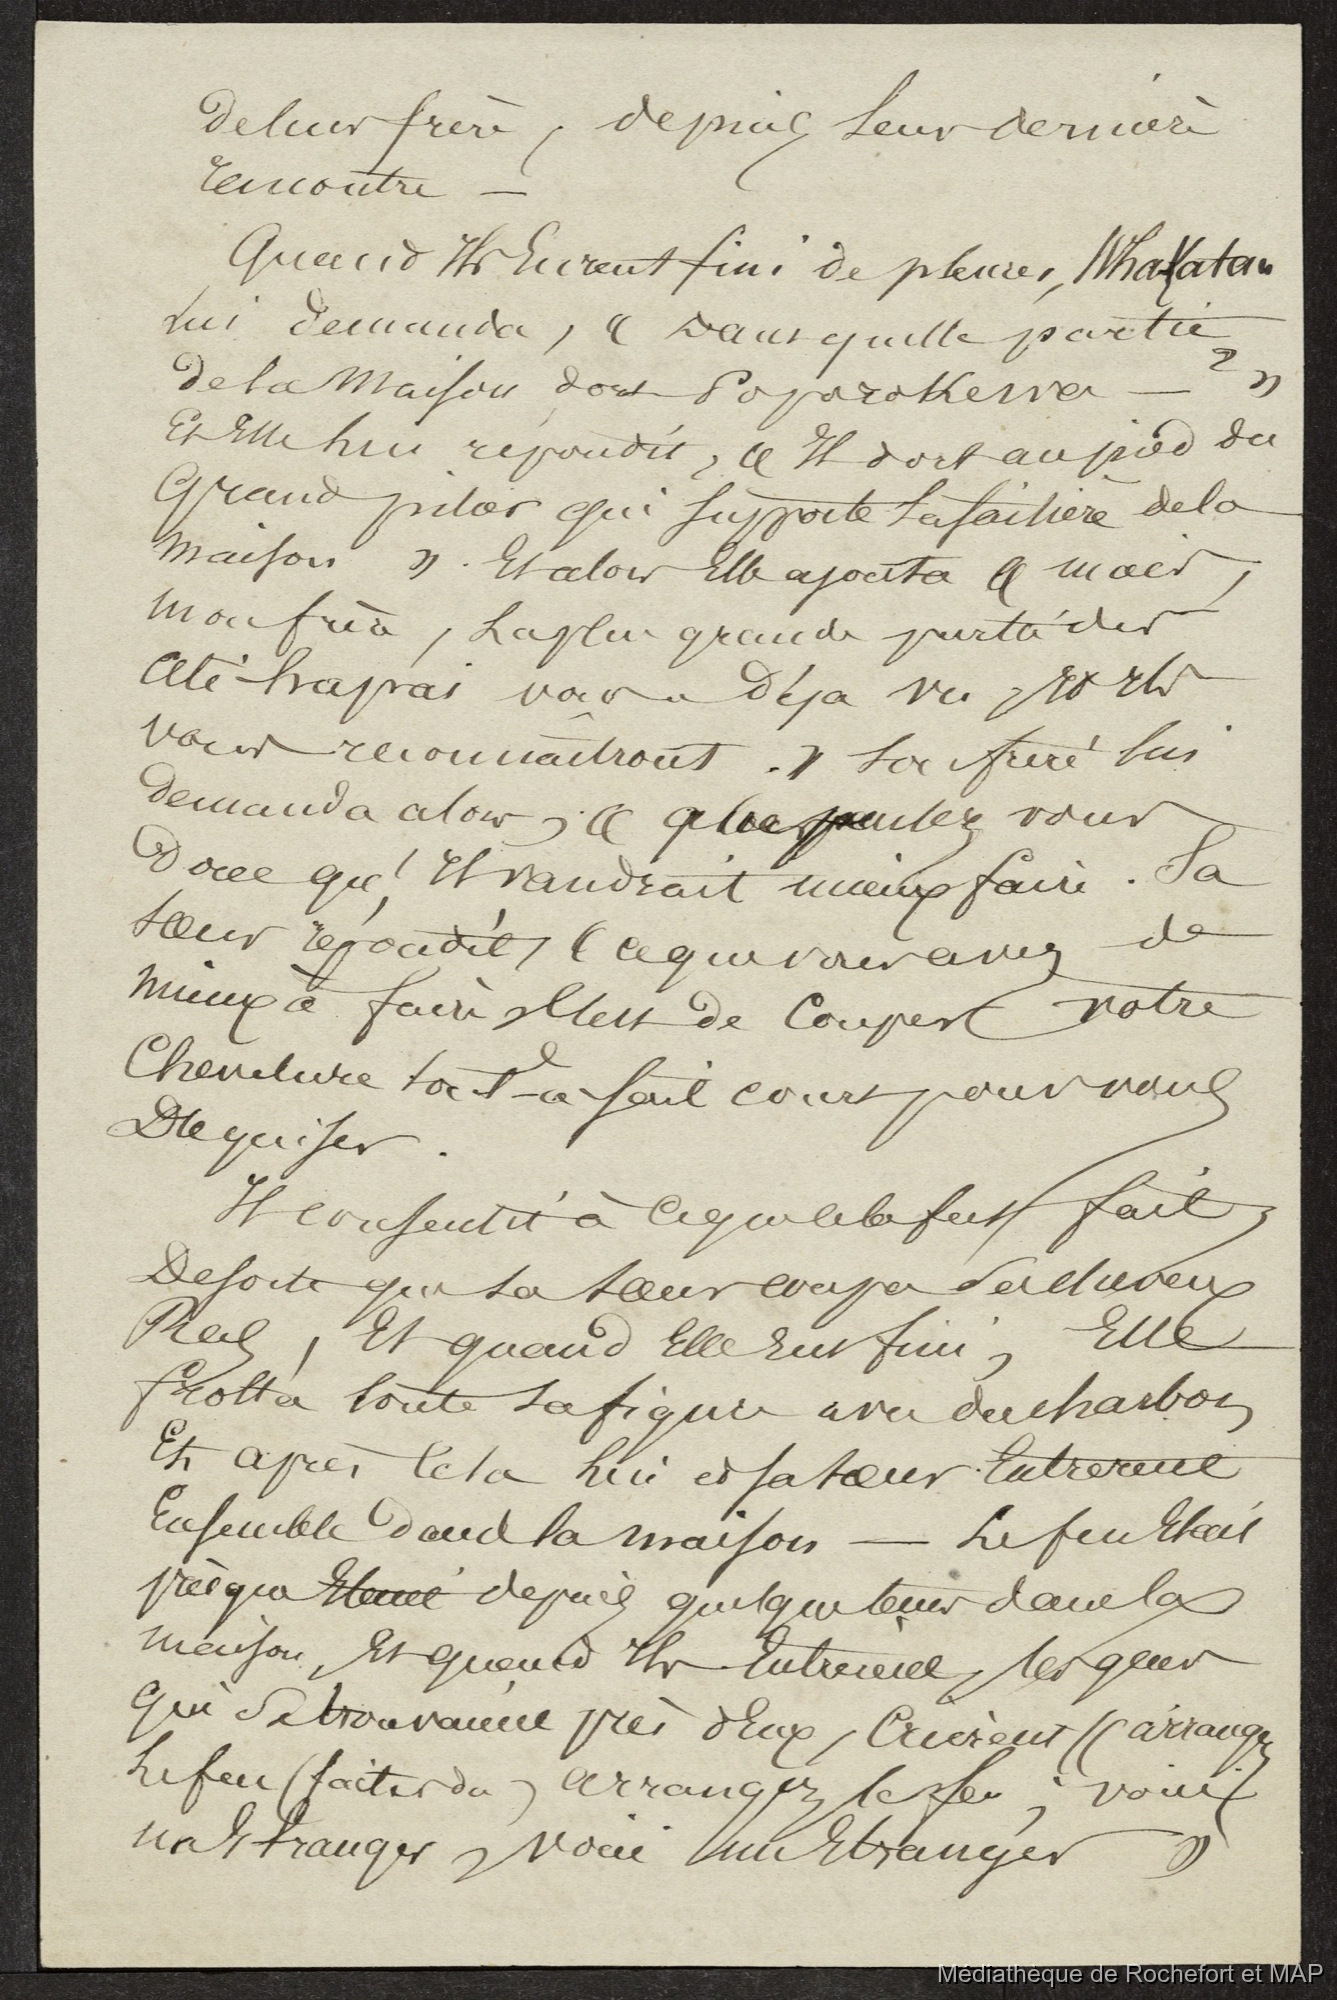 de leur frère, depuis leur dernière
rencontre —
Quand Ils Eurent fini de pleurer, Whakatau
lui demanda, « Dans quelle partie
de la Maison dort Poporokewa — ? »
Et Elle lui répondit, « Il dort au pied du
Grand pilier qui supporte la faitière de la
maison ». Et alors Elle ajouta « mais,
mon frère, La plus grande partie des
Ati-hapai vous a Déja vu, Et Ils
vous reconnaîtront. » Son frère lui
demanda alors, « que pensez vous
Donc qu'Il vaudrait mieux faire. Sa
sœur répondit, « ce que vous avez de
mieux à faire, c'est de Couper votre
Chevelure tout-à-fait court pour vous
Déguiser.
Il consentit à ce que cela fut fait,
De sorte que sa sœur coupa ses cheveux
Ras, Et quand Elle Eut fini, Elle
frotta toute sa figure avec du charbon,
Et après cela lui et sa sœur Entrèrent
Ensemble dans la maison — Le feu Etait
presque Eteint depuis quelque temps dans la
maison, Et quand Ils Entrèrent, les gens
qui se trouvaient près d'Eux, Crièrent « arrangez
Le feu (faites du) arrangez le feu, voici
un Etranger, voici un Etranger »
Médiathèque de Rochefort et MAP